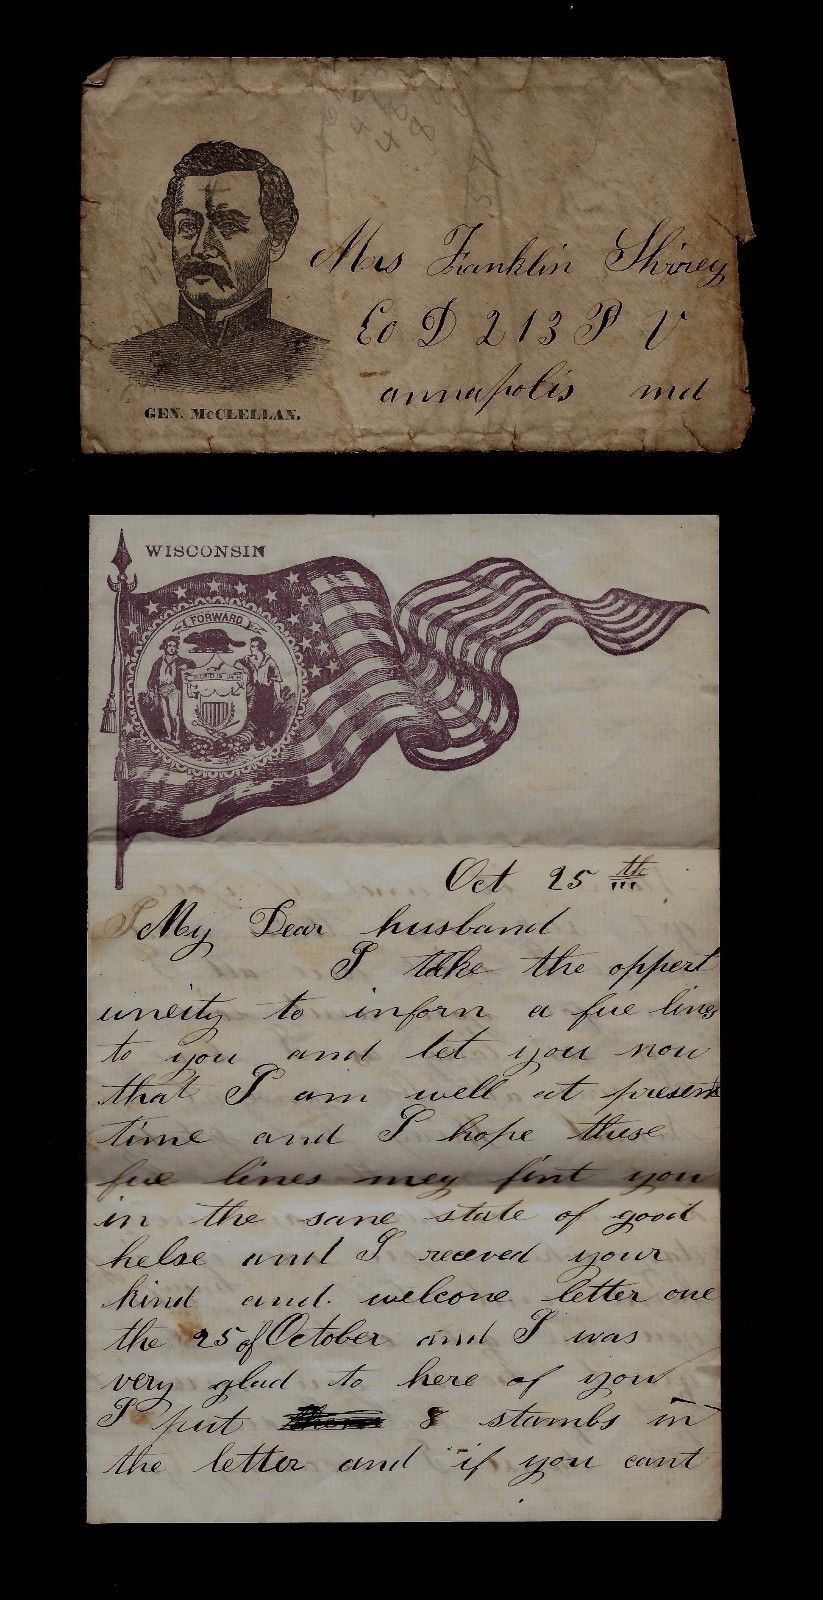 Mrs Franklin Shirey
Co D 213 P V
annapolis md
GEN. McCLELLAN.
WISCONSIN
FORWARD
Oct 25 th
My Dear husband
I take the oppert
uneity to inforn a fue lines
to you and let you now
that I am well at present
time and I hope these
fue lines mey fint you
in the sane state of good
helse and I receved your
kind and welcone letter one
the 25 of October and I was
very glad to here of you
I put 8 stambs in
the letter and if you cant